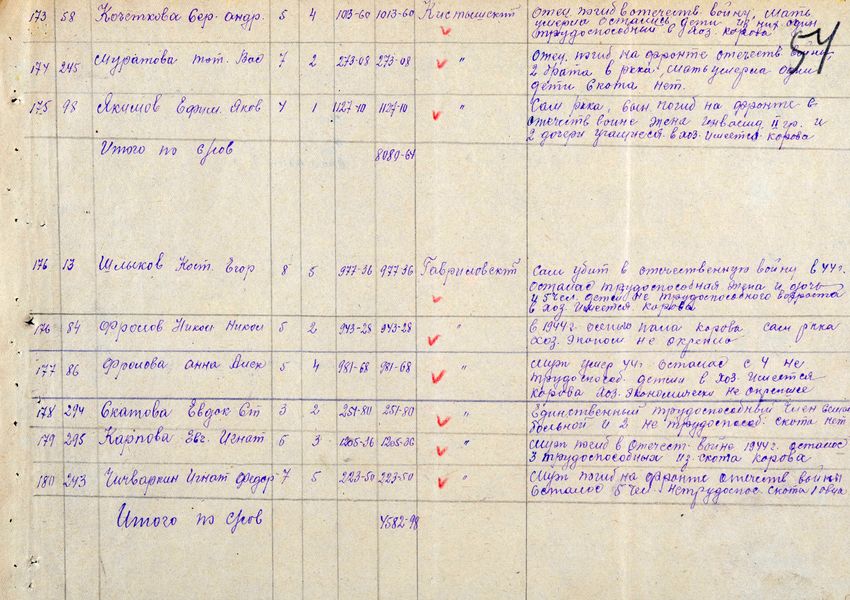 173 58 Кочеткова Сер. андр. 5 4 103-60 1013-60 Кистышский Отец погиб в отечеств. войну, мать
умерла остались дети из них один
трудоспособный в хоз. корова
54
174 245 Муратова Вас 7 2 273-08 273-08 " Отец погиб на фронте отечеств войны
2 брата в ркка, мать умерла одни
дети скота нет.
175 98 Якимов Ефим. Яков 4 1 1127-10 1127-10 " Сам ркка, был погиб на фронте в
отечеств войне жена инвалид II гр. и
2 дочери учащиеся в хоз. имеется корова
Итого по с/сов 8089-61
176 13 Шлыков Кост. Егор 8 5 977-36 977-36 Гавриловский Сам убит в отечественную войну в 44г.
осталась трудоспособная жена и дочь
и 5 чел. детей не трудоспособного возраста
в хоз имеется корова
176 84 Фролов Никол Никол 5 2 943-28 943-28 " в 1944г. пала корова сам ркка
хоз. эконом не окрепло
177 86 Фролова анна Алек 5 4 981-68 981-68 " Муж умер 44г. осталась с 4 не
трудоспособ. детьми в хоз. имеется
корова хоз. экономически не окрепшее
178 294 Скатова Евдок Ст 3 2 251-80 251-80 " Единственный трудоспособный член
больной и 2 не трудоспособ: скота нет
179 295 Карпова Евг. Игнат 6 3 1205-36 1205-36 " Муж погиб в Отечест. войне 1944г. осталос
3 трудоспособных из скота корова
180 243 Чичваркин Игнат Федор 7 5 223-50 223-50 " Муж погиб на фронте отечеств войны
осталос 5 чел нетрудоспос. скота 1 овца
Итого по с/сов 4582-98